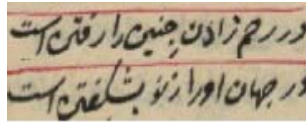 در رحم زادن جنین را رفتن است
در جهان او را ز نو بشکفتن است